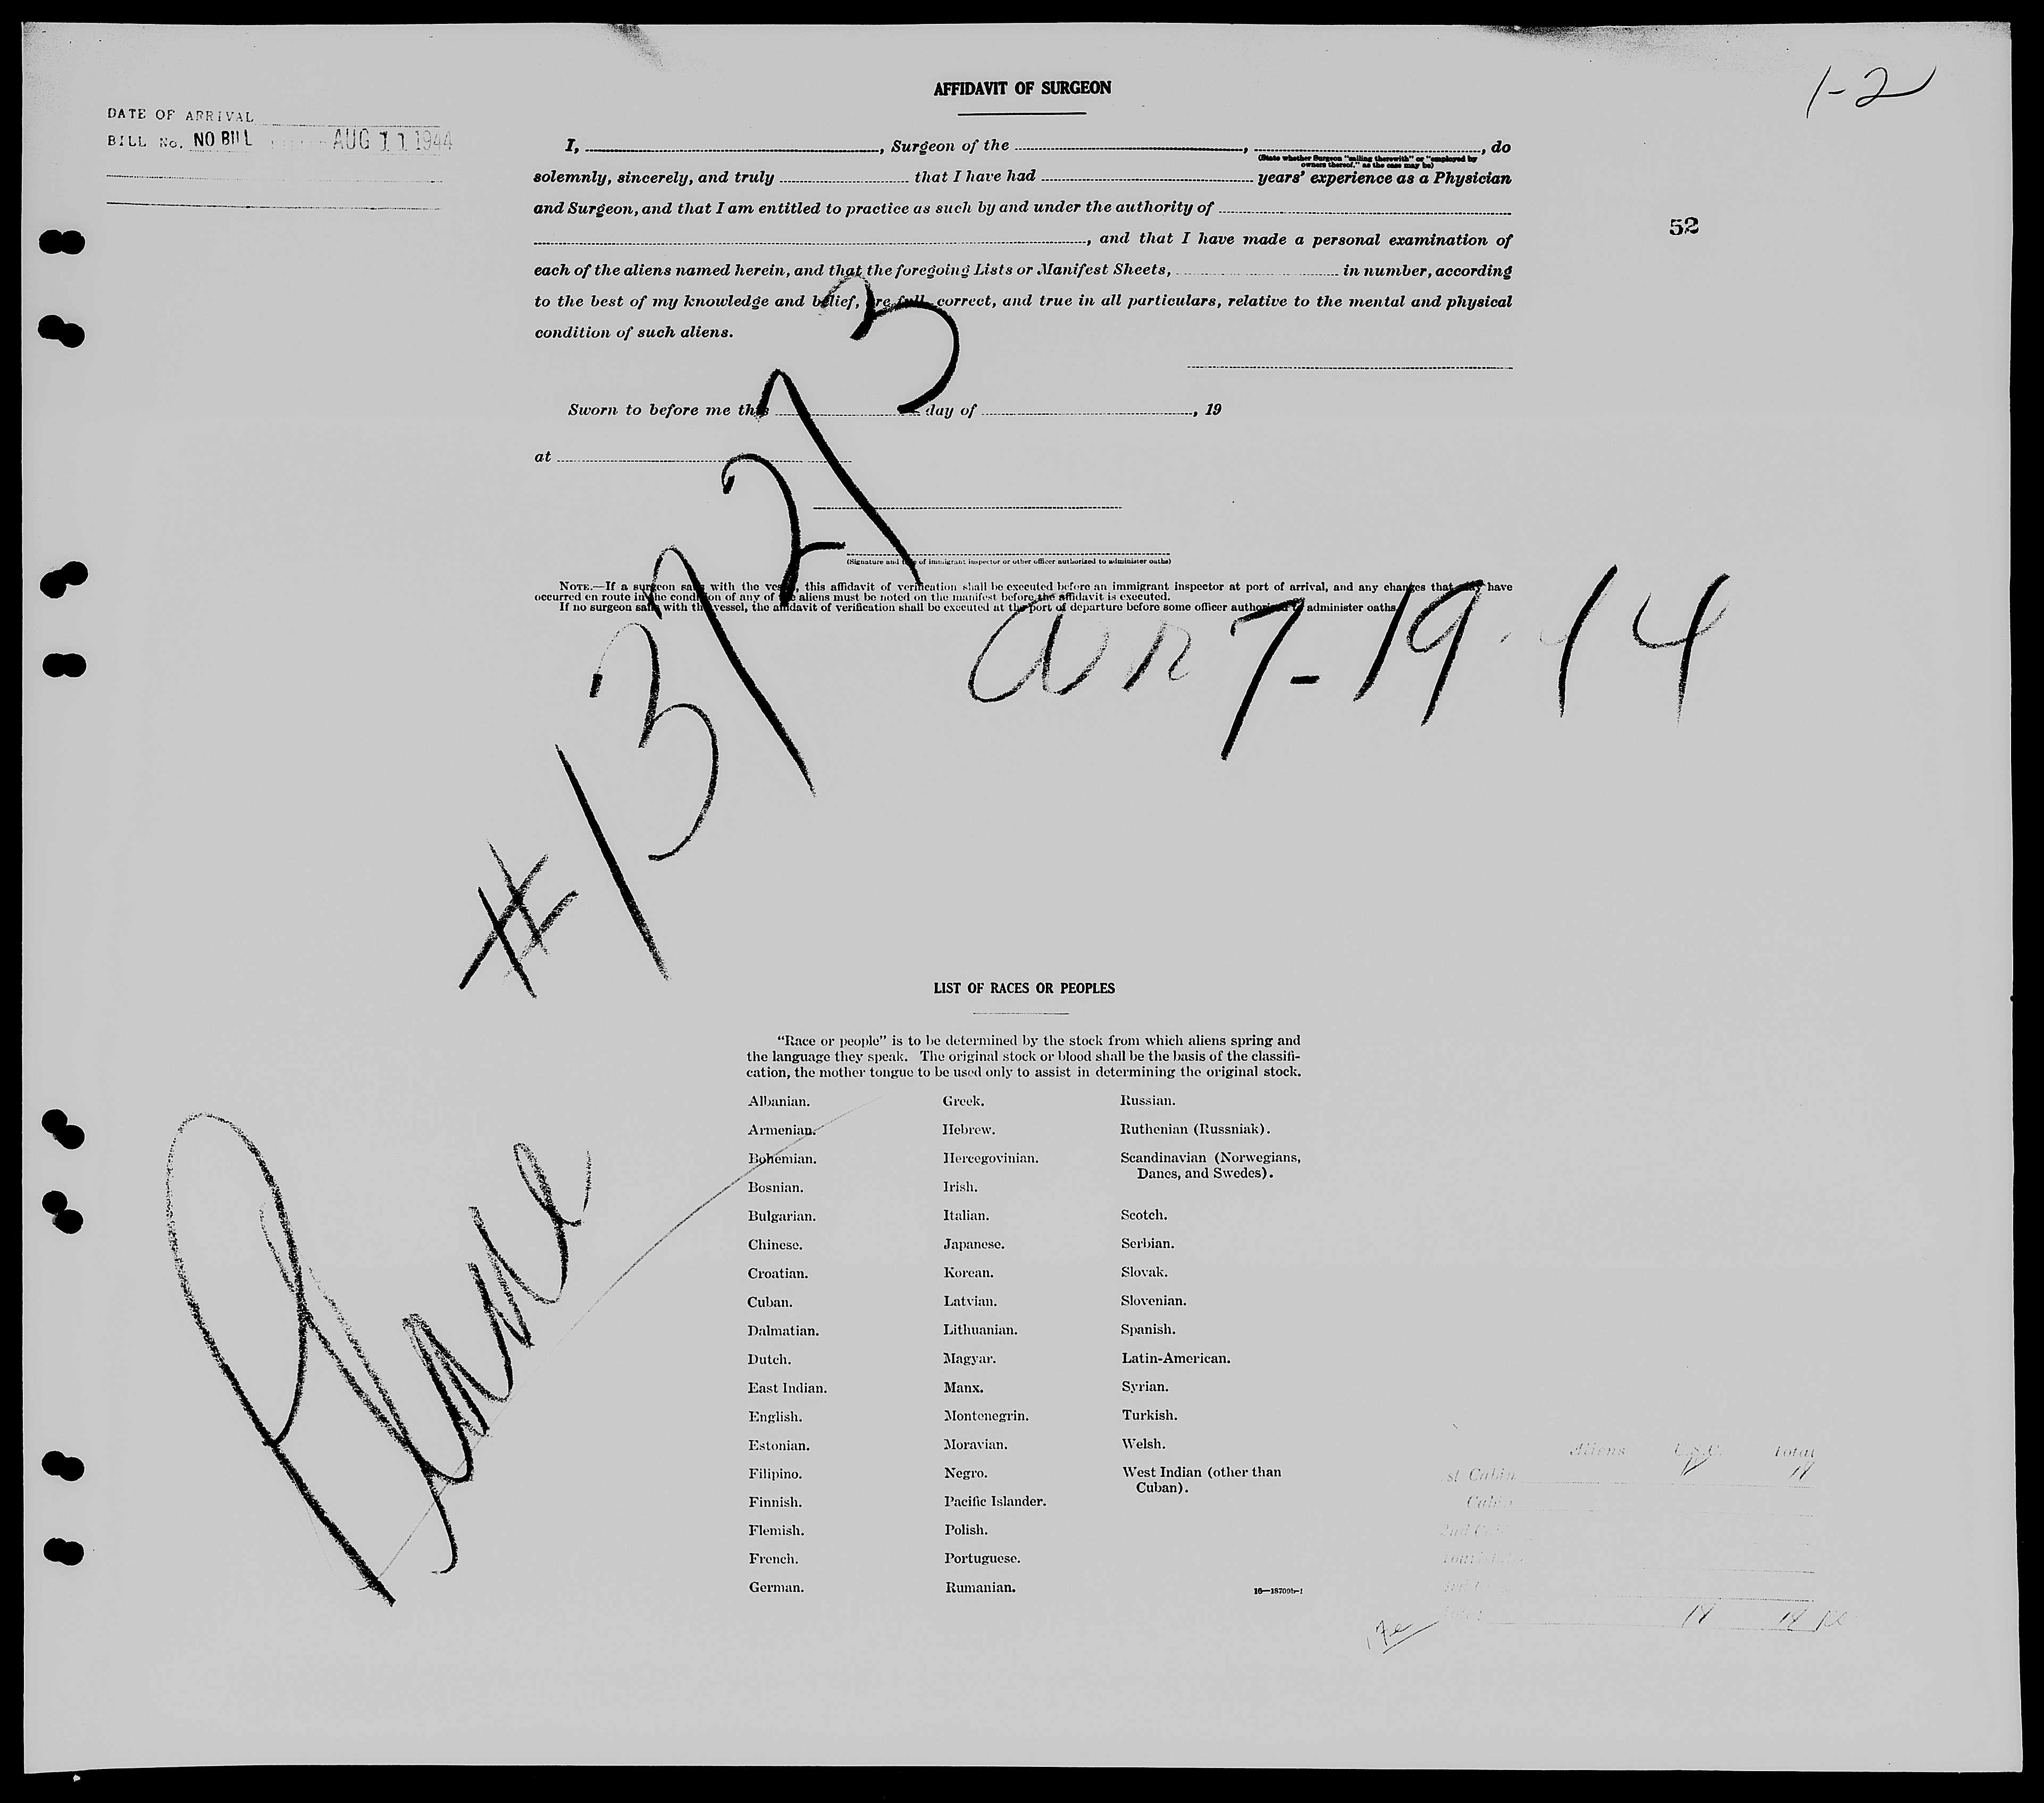 1-2
AFFIDAVIT OF SURGEON
DATE OF ARRIVAL
BILL No. NO BILL AUG 11 1944
I, , Surgeon of the , , do
(State whether Surgeon "sailing therewith" or "employed by
owners thereof," as the case may be)
solemnly, sincerely, and truly that I have had years' experience as a Physician
and Surgeon, and that I am entitled to practice as such by and under the authority of
52
, and that I have made a personal examination of
each of the aliens named herein, and that the foregoing Lists or Manifest Sheets, in number, according
to the best of my knowledge and belief, are full, correct, and true in all particulars, relative to the mental and physical
condition of such aliens.
Sworn to before me this day of , 19
at
(Signature and title of immigrant inspector or other officer authorized to administer oaths)
NOTE.—If a surgeon sails with the vessel, this affidavit of verification shall be executed before an immigrant inspector at port of arrival, and any changes that may have
occurred en route in the condition of any of the aliens must be noted on the manifest before the affidavit is executed.
If no surgeon sails with the vessel, the affidavit of verification shall be executed at the port of departure before some officer authorized to administer oaths.
7-19-44
#137273
LIST OF RACES OR PEOPLES
"Race or people" is to be determined by the stock from which aliens spring and
the language they speak. The original stock or blood shall be the basis of the classifi-
cation, the mother tongue to be used only to assist in determining the original stock.
Albanian. Greek. Russian.
Armenian. Hebrew. Ruthenian (Russniak).
Bohemian. Hercegovinian. Scandinavian (Norwegians,
Danes, and Swedes).
Bosnian. Irish.
Bulgarian. Italian. Scotch.
Chinese. Japanese. Serbian.
Croatian. Korean. Slovak.
Cuban. Latvian. Slovenian.
Dalmatian. Lithuanian. Spanish.
Dutch. Magyar. Latin-American.
East Indian. Manx. Syrian.
English. Montenegrin. Turkish.
Estonian. Moravian. Welsh.
Filipino. Negro. West Indian (other than
Cuban).
Finnish. Pacific Islander.
Flemish. Polish.
French. Portuguese.
German. Rumanian.
16—18709b-1
Plane
Aliens U.S.C. Total
st Cabin
Cabin
2nd